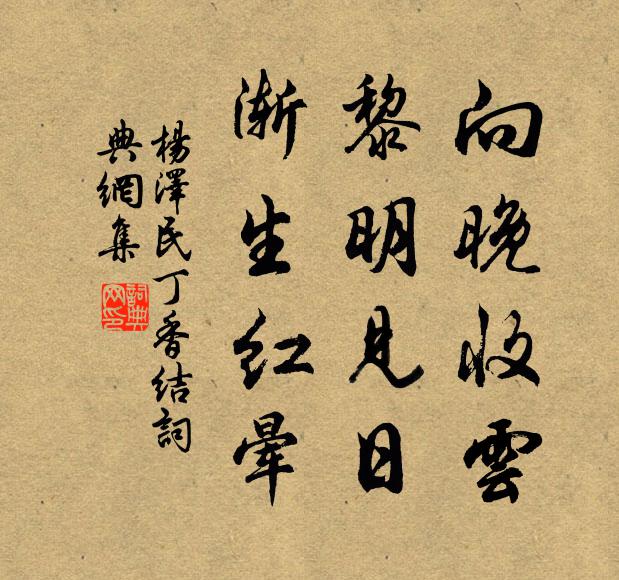 向晚收雲
黎明見日
渐生红暈
楊澤民丁香结詞
典網集
詞典网印